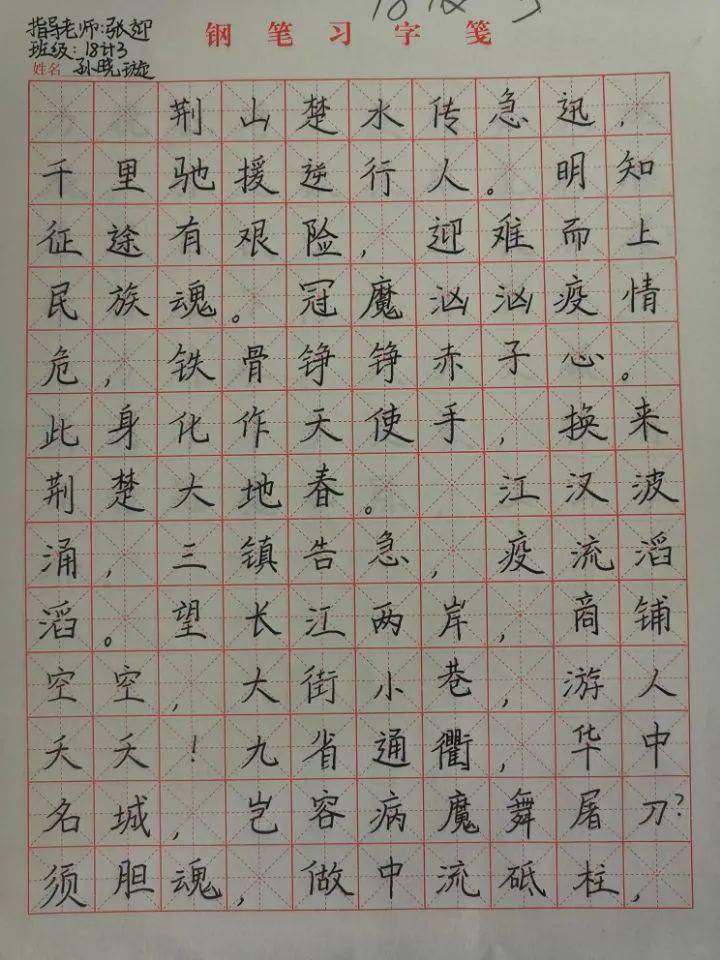 指导老师:张迎
钢笔习字笺
班级:18计3
姓名 孙晓璇
荆山楚水传急迅,
千里驰援逆行人。明知
征途有艰险,迎难而上
民族魂。冠魔汹汹疫情
危,铁骨铮铮赤子心。
此身化作天使手,换来
荆楚大地春。 江汉波
涌,三镇告急,疫流滔
滔。望长江两岸,商铺
空空,大街小巷,游人
夭夭!九省通衢,华中
名城,岂容病魔舞屠刀?
须胆魂,做中流砥柱,